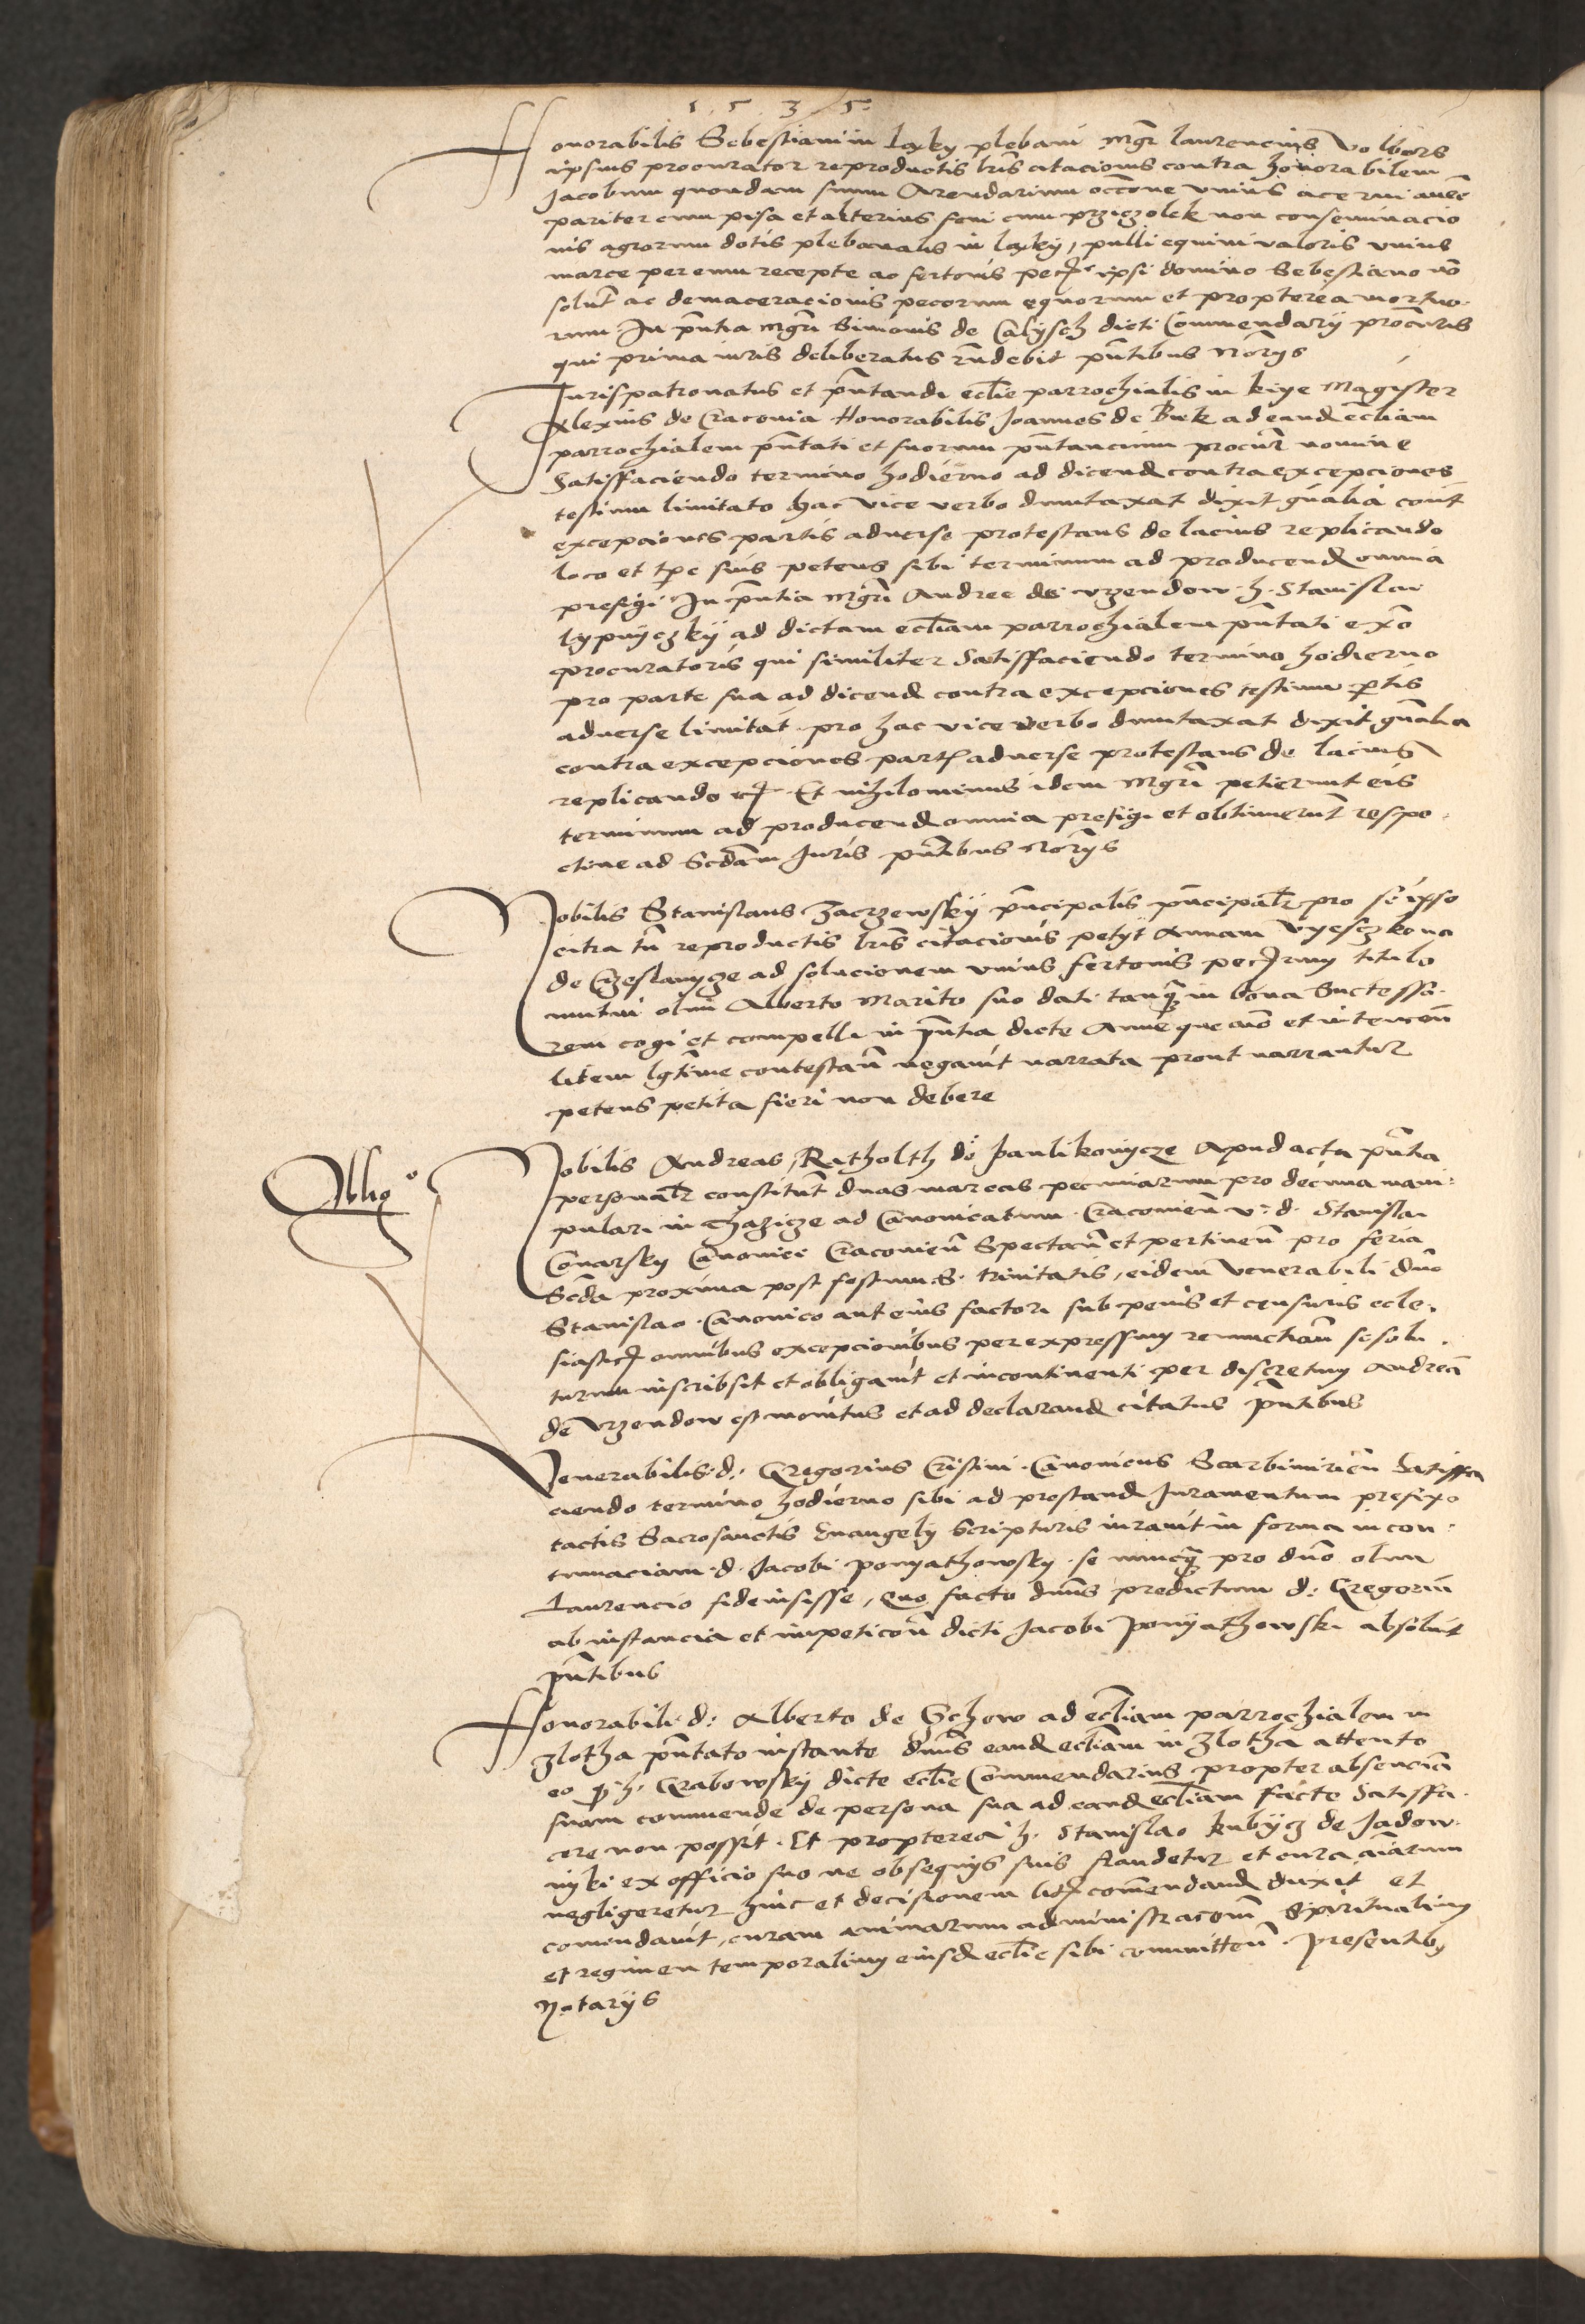 1 5 3 5
Honorabilis Sebestiani in Laky plebani Mgri Laurencius
ipsius procurator reproductis lris citacionis contra honorabilem
Jacobum quondam suum Arendarium occone unius acervi avee
pariter cum pisa et alterius feni cum non conseminacio
nis agrorum dotis plebanalis in Laky, pulli equini valoris unius
marce per eum recepte ac fertonis pec ipsi domino Sebestiano no
solut ac demaceracionis pecorum equorum et propterea mortuo
rum. In pntia Mgri Simonis de Calysch dicti Commendarij procuris
qui prima iuris deliberatus rndebit pntibus Norijs
Jurispatronatus et pntandi eclie parrochialis in kiye Magister
Alexius de Cracovia Honorabilis Joannes de Buk ad eand eccliam
parrochialem pntati et suorum pntancium procur nomine
Satisfaciendo termino hodierno ad dicend contra excepciones
testium limitato hac vice verbo dumtaxat dixit gnalia cont
excepciones partis adverse protestans de lacius replicando
loco et tpe suis petens sibi terminum ad producend omnia
prefigi In pntia Mgri Andree de Vrzendow h. Stanislai
Lypnyczkij ad dictam eccliam parrochialem pntati exo
procuratoris qui similiter Satisfaciendo termino hodierno
pro parte sua ad dicend contra excepciones testium ptis
adverse limitat pro hac vice verbo dumtaxat dixit gnalia
contra excepciones part adverse protestans de lacius
replicando Et nihilominus idem Mgri petierunt eis
terminum ad producend omnia prefigi et obtinuerunt respe
ctive ad Scdam Juris pntibus Norijs
Nobilis Stanislaus Zacrzewskij pncipalis pncipalr pro se ipso
citra tn reproductis lris citacionis petijt Annam Vyesczkona
de Czeslawycze ad solucionem unius fertonis pec titulo
mutui olim Alberto Marito suo dati tanq in bona Successo
rem cogi et compelli in pntia dicte Anne que aio et intencon
litem lgtime contestan negavit narrata prout narrantur
petens petita fieri non debere
Obligo
Nobilis Andreas Ratholth de Paulikowycze Apud acta pntia
personalr constitut duas marcas pecuniarum pro decima mani
pulari in ad Canonicatum Cracovien v. d. Stanislai
Conarsky Canonici Cracovien Spectan et pertinen pro feria
Scda proxima post festum S. trinitatis, eidem Venerabili dno
Stanislao Canonico aut eius factori sub penis et censuris eccle
siastic omnibus excepcionibus per expressum renunctiam se solu
turum inscribsit et obligavit et incontinenti per discretum Andrea
de Vrzendow est monitus et ad declarand citatus pntibus
Venerabilis d. Gregorius Cristini Canonicus Scarbimirien Satisfa
ciendo termino hodierno sibi ad prestand Juramentum prefixo
tactis Sacrosanctis Evangelij Scripturis iuravit in forma in con
tumaciam d. Jacobi Ponyathowsky se nunq pro dno olim
Laurencio fideiusisse, Quo facto dnus predictum d. Gregoriu
ab instancia et impeticon dicti Jacobi Ponyathowski absolvit
pntibus
Honorabili d. Alberto de Schow ad eccliam parrochialem in
Zlotha pntato instante dnus eand eccliam in Zlotha attento
eo q h. Grabowskij dicte eclie Commendarius propter absencia
suam commende de persona sua ad eand eccliam facte Satisfa
cere non possit. Et propterea h. Stanislao Kubycz de Jadow
nyki ex officio suo ne obsequijs suis fraudetur et cura aiarum
negligeretur hinc et decisionem lit commendand duxit et
comendavit, curam animarum administracom Spiritualium
et regimen temporalium eiusd eclie sibi committen. Presentib
Notarijs